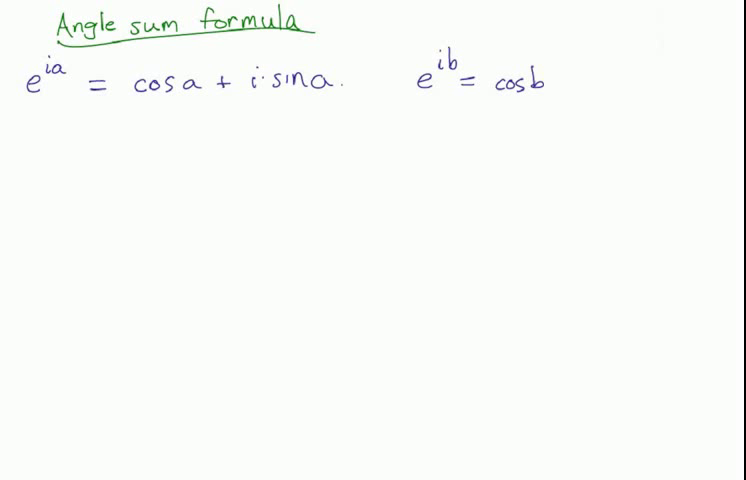 Angle sum formula
e^{ia} = cos a + i·sin a. e^{ib} = cos b